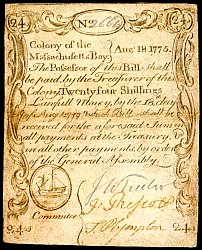 24 No 24
Colony of the Aug 18 1775.
Massachusetts Bay,
The Possessor of this Bill shall
be paid, by the Treasurer of this
Colony Twentyfour Shillings
Lawfull Money, by the Day
which Bill shall be
received for the aforesaid Sum
in all payments at the Treasury &
in all other payments, by order
of the General Assembly.
Committee
24 24